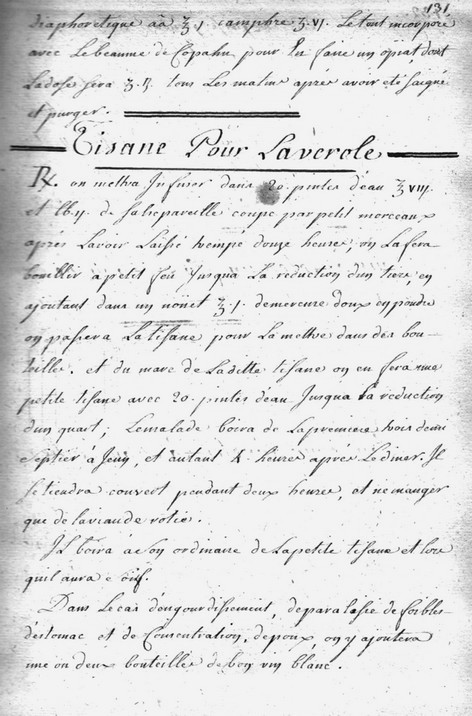 131
diaphoretique aã ʒ.j camphre ʒ.vj. Le tout incorporé
avec Le beaume de Copahu pour En faire un opiat, dont
La dose sera ʒ.ß. tous Les matins aprés avoir eté saigné
et purger.
Tisane Pour Laverole
℞. on mettra Jnfuser dans 20 pintes d'eau ℥ viij.
et lb.ij. de salsepareille coupé par petit morceaux
aprés Lavoir Laissé trempé douze heures, on La fera
bouillir à petit feu Jusqua La reduction d'un tiers, en
ajoutant dans un nouet ℥.j. demercure doux en poudre
on passera La tisane pour La mettre dans des bou-
teilles. et du marc de Laditte tisane on en fera une
petite tisane avec 20. pintes deau Jusqua La reduction
d'un quart; Lemalade boira de Lapremiere trois demi
septier à Jeun, et autant 4 heures aprés Le diner. Jl
se tiendra couvert pendant deux heures, et ne manger
que de laviande rotie.
Jl boira a son ordinaire de Lapetite tisane et lors
quil aura soif.
Dans Le cas dengourdissement, deparalisie de foibles-
destomac et de Concentration, depoux, on y ajoutera
une ou deux bouteilles de bon vin blanc.